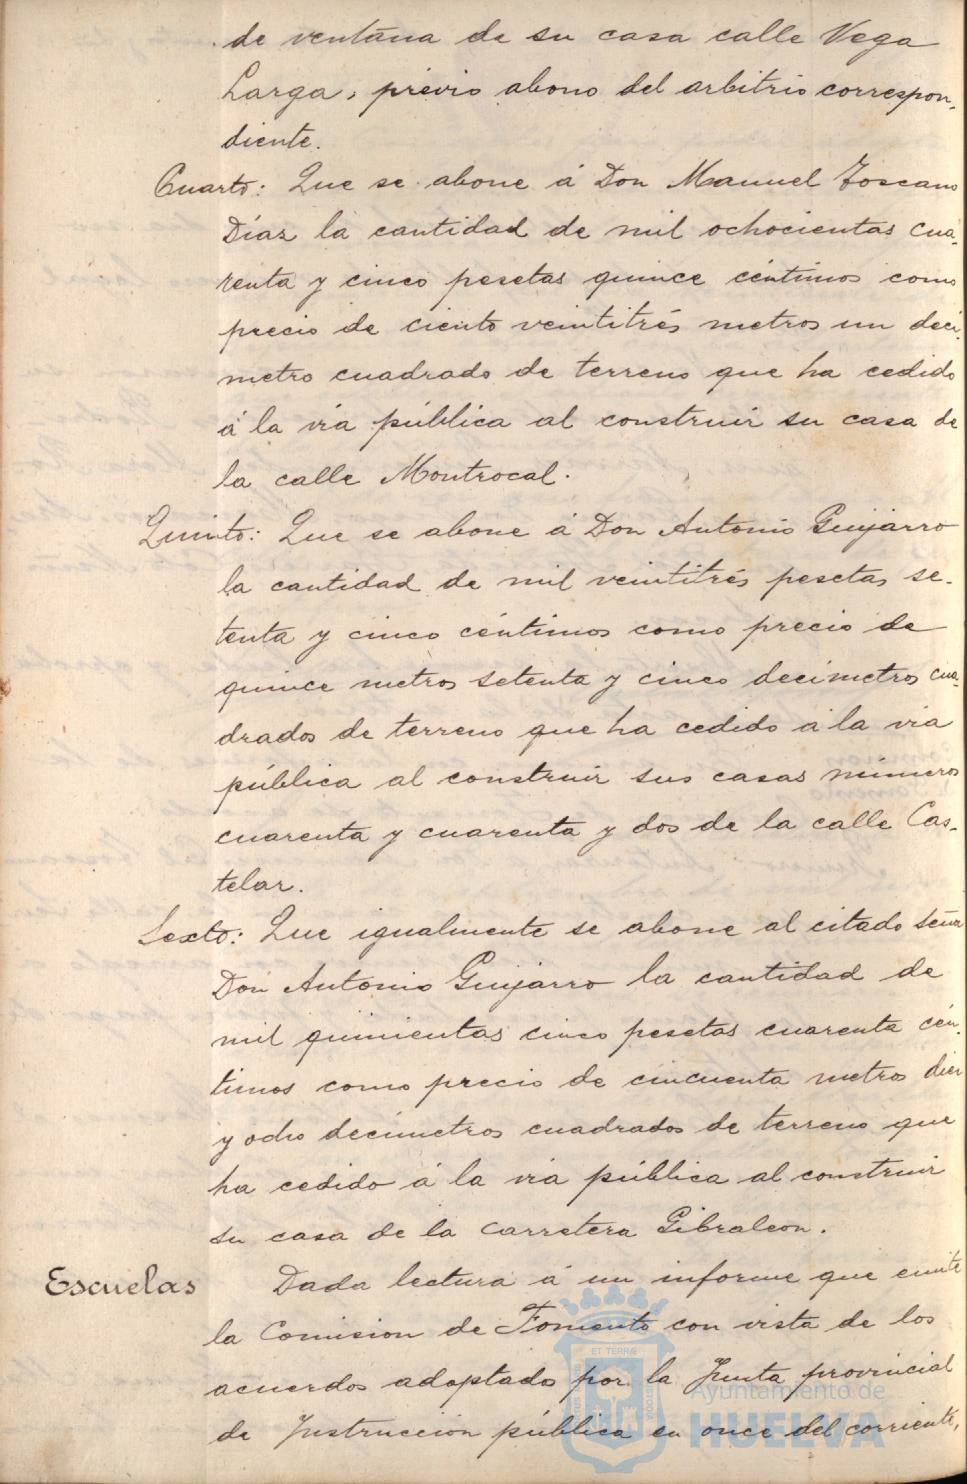 de ventana de su casa calle Vega
Larga, prévio abono del arbitrio correspon-
diente.
Cuarto: Que se abone á Don Manuel Toscano
Díaz la cantidad de mil ochocientas cua-
renta y cinco pesetas quince céntimos como
precio de ciento veintitrés metros un decí-
metro cuadrado de terreno que ha cedido
á la vía pública al construir su casa de
la calle Montrocal.
Quinto: Que se abone á Don Antonio Guijarro
la cantidad de mil veintitrés pesetas se-
tenta y cinco céntimos como precio de
quince metros setenta y cinco decímetros cua-
drados de terreno que ha cedido á la vía
pública al construir sus casas números
cuarenta y cuarenta y dos de la calle Cas-
telar.
Sexto: Que igualmente se abone al citado señor
Don Antonio Guijarro la cantidad de
mil quinientas cinco pesetas cuarenta cén-
timos como precio de cincuenta metros diez
y ocho decímetros cuadrados de terreno que
ha cedido á la vía pública al construir
su casa de la carretera Gibraleon.
Escuelas Dada lectura á un informe que emite
la Comision de Fomento con vista de los
acuerdos adoptados por la Junta provincial
de Instruccion pública en once del corriente,
ET TERRÆ
Ayuntamiento de
HUELVA